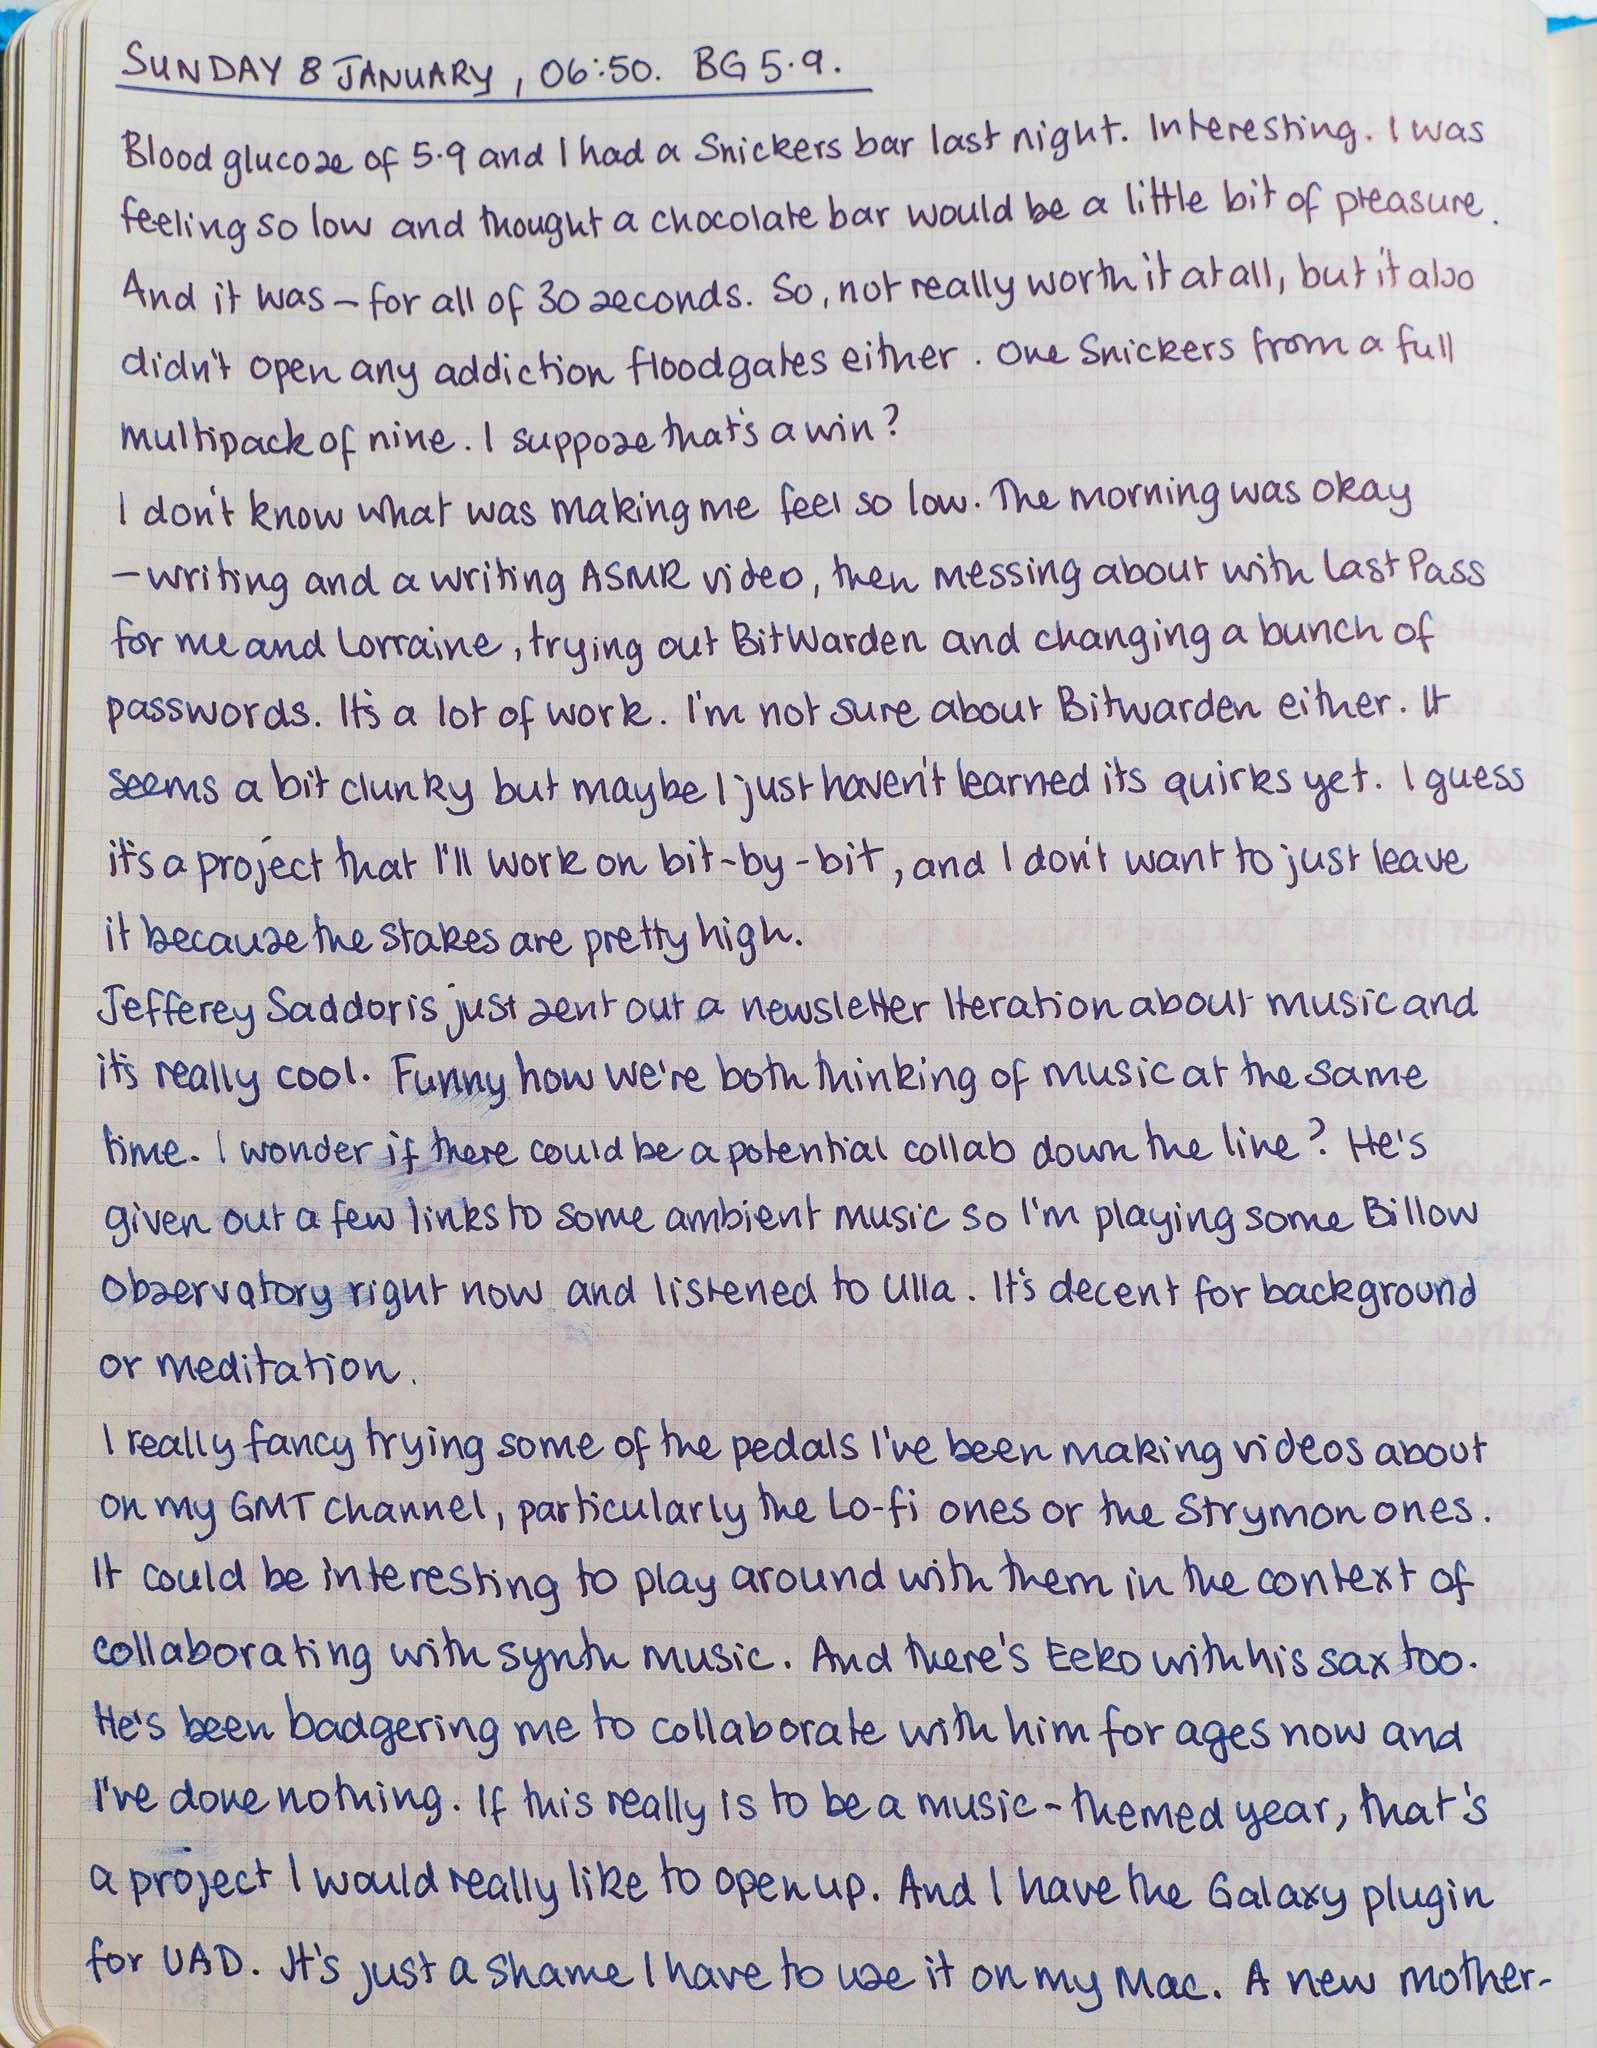 SUNDAY 8 JANUARY, 06:50. BG 5.9.
Blood glucose of 5.9 and I had a Snickers bar last night. Interesting. I was
feeling so low and thought a chocolate bar would be a little bit of pleasure.
And it was – for all of 30 seconds. So, not really worth it at all, but it also
didn't open any addiction floodgates either. One Snickers from a full
multipack of nine. I suppose that's a win?
I don't know what was making me feel so low. The morning was okay
– writing and a writing ASMR video, then messing about with LastPass
for me and Lorraine, trying out BitWarden and changing a bunch of
passwords. It's a lot of work. I'm not sure about Bitwarden either. It
seems a bit clunky but maybe I just haven't learned its quirks yet. I guess
it's a project that I'll work on bit-by-bit, and I don't want to just leave
it because the stakes are pretty high.
Jefferey Saddoris just sent out a newsletter Iteration about music and
it's really cool. Funny how we're both thinking of music at the same
time. I wonder if there could be a potential collab down the line? He's
given out a few links to some ambient music so I'm playing some Billow
Observatory right now and listened to Ulla. It's decent for background
or meditation.
I really fancy trying some of the pedals I've been making videos about
on my GMT channel, particularly the Lo-fi ones or the Strymon ones.
It could be interesting to play around with them in the context of
collaborating with synth music. And there's Eeko with his sax too.
He's been badgering me to collaborate with him for ages now and
I've done nothing. If this really is to be a music-themed year, that's
a project I would really like to open up. And I have the Galaxy plugin
for UAD. It's just a shame I have to use it on my Mac. A new mother-